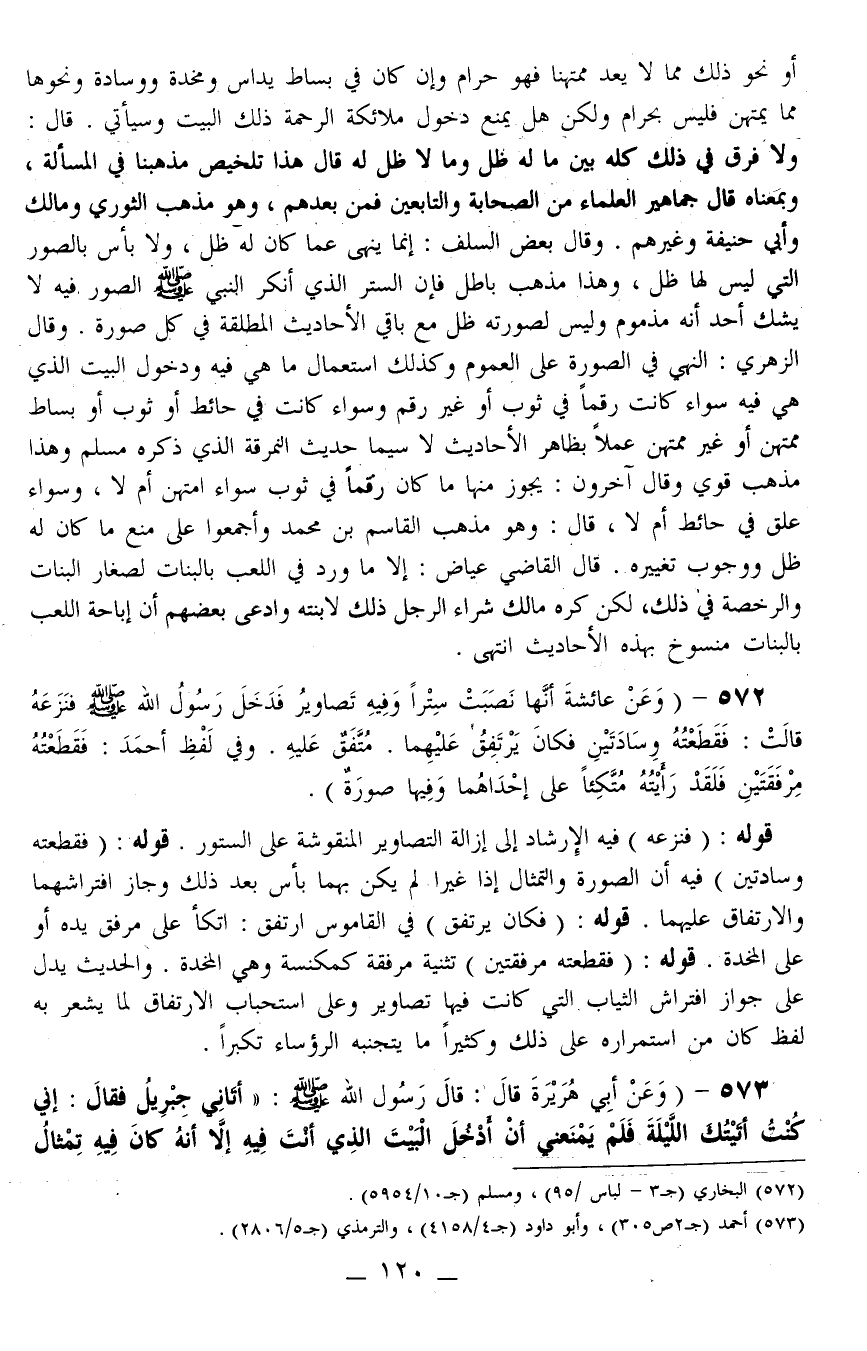 أو نحو ذلك مما لا يعد ممتهنا فهو حرام وإن كان في بساط يداس ومخدة ووسادة ونحوها
مما يمتهن فليس بحرام ولكن هل يمنع دخول ملائكة الرحمة ذلك البيت وسيأتي . قال :
ولا فرق في ذلك كله بين ما له ظل وما لا ظل له قال هذا تلخيص مذهبنا في المسألة ،
وبمعناه قال جماهير العلماء من الصحابة والتابعين فمن بعدهم ، وهو مذهب الثوري ومالك
وأبي حنيفة وغيرهم . وقال بعض السلف : إنما ينهى عما كان له ظل ، ولا بأس بالصور
التي ليس لها ظل ، وهذا مذهب باطل فإن الستر الذي أنكر النبي ﷺ الصور فيه لا
يشك أحد أنه مذموم وليس لصورته ظل مع باقي الأحاديث المطلقة في كل صورة . وقال
الزهري : النهي في الصورة على العموم وكذلك استعمال ما هي فيه ودخول البيت الذي
هي فيه سواء كانت رقماً في ثوب أو غير رقم وسواء كانت في حائط أو ثوب أو بساط
ممتهن أو غير ممتهن عملاً بظاهر الأحاديث لا سيما حديث النمرقة الذي ذكره مسلم وهذا
مذهب قوي وقال آخرون : يجوز منها ما كان رقماً في ثوب سواء امتهن أم لا ، وسواء
علق في حائط أم لا ، قال : وهو مذهب القاسم بن محمد وأجمعوا على منع ما كان له
ظل ووجوب تغييره . قال القاضي عياض : إلا ما ورد في اللعب بالبنات لصغار البنات
والرخصة في ذلك، لكن كره مالك شراء الرجل ذلك لابنته وادعى بعضهم أن إباحة اللعب
بالبنات منسوخ بهذه الأحاديث انتهى .
٥٧٢ – ( وَعَنْ عائشةَ أنَّها نَصَبَتْ سِتْراً وَفِيهِ تَصاويرُ فَدَخَلَ رَسُولُ الله ﷺ فَنَزَعَهُ
قالَتْ : فَقَطَعْتُهُ وِسَادَتَيْنِ فكانَ يَرْتَفِقُ عَلَيْهِما . مُتَّفَقٌ عَليهِ . وفي لَفْظِ أحمَدَ : فَقَطَعْتُهُ
مِرْفَقَتَيْنِ فَلَقَدْ رَأَيْتُهُ مُتَّكِئاً على إحْدَاهُما وَفِيها صورَةٌ ) .
قوله : ( فنزعه ) فيه الإرشاد إلى إزالة التصاوير المنقوشة على الستور . قوله : ( فقطعته
وسادتين ) فيه أن الصورة والتمثال إذا غيرا لم يكن بهما بأس بعد ذلك وجاز افتراشهما
والارتفاق عليهما . قوله : ( فكان يرتفق ) في القاموس ارتفق : اتكأ على مرفق يده أو
على المخدة . قوله : ( فقطعته مرفقتين ) تثنية مرفقة كمكنسة وهي المخدة . والحديث يدل
على جواز افتراش الثياب التي كانت فيها تصاوير وعلى استحباب الارتفاق لما يشعر به
لفظ كان من استمراره على ذلك وكثيراً ما يتجنبه الرؤساء تكبراً .
٥٧٣ – ( وَعَنْ أبي هُرَيْرَةَ قالَ : قالَ رَسُول الله ﷺ : « أتاني جِبْرِيلُ فقالَ : إني
كُنْتُ أتَيْتُكَ اللَّيْلَةَ فَلَمْ يَمْنَعني أنْ أَدْخُلَ الْبَيْتَ الذِي أنْتَ فِيهِ إلَّا أنهُ كانَ فِيهِ تِمْثالُ
(٥٧٢) البخاري (جـ٣ – لباس /٩٥) ، ومسلم (جـ٥٩٥٤/١٠) .
(٥٧٣) أحمد (جـ٢ص٣٠٥) ، وأبو داود (جـ٤١٥٨/٤) ، والترمذي (جـ٢٨٠٦/٥) .
– ١٢٠ –